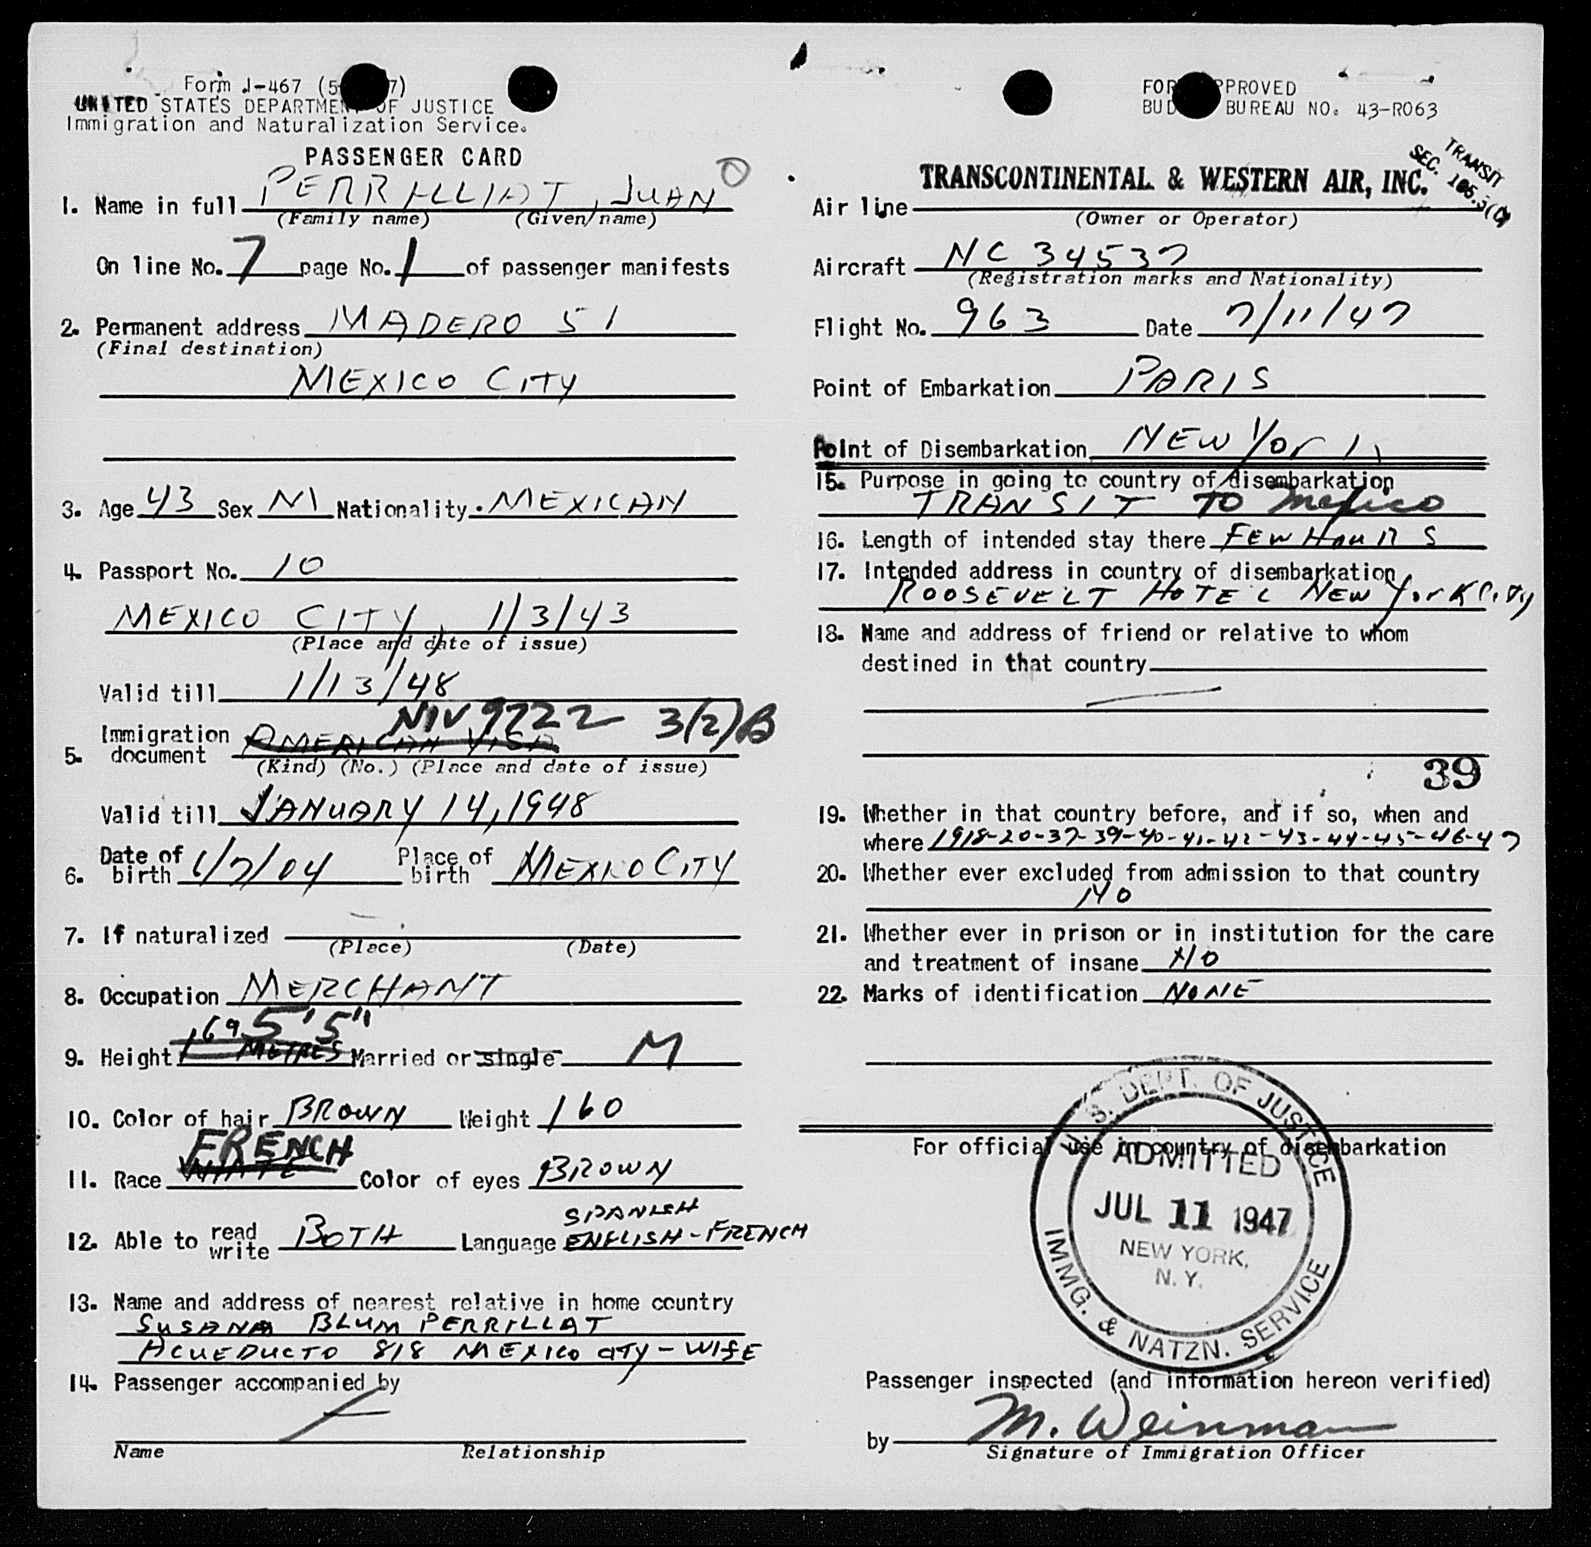 Form I-467 (5 7)
UNITED STATES DEPARTMENT OF JUSTICE
Immigration and Naturalization Service.
PASSENGER CARD
1. Name in full PERRILLIAT, JUAN
(Family name) (Given name)
On line No. 7 page No. 1 of passenger manifests
2. Permanent address MADERO 51
(Final destination)
MEXICO CITY
3. Age 43 Sex M Nationality MEXICAN
4. Passport No. 10
MEXICO CITY, 1/3/43
(Place and date of issue)
Valid till 1/13/48
NIV 9722 3(2)B
5. Immigration document AMERICAN VISA
(Kind) (No.) (Place and date of issue)
Valid till JANUARY 14, 1948
6. Date of birth 1/7/04 Place of birth MEXICO CITY
7. If naturalized
(Place) (Date)
8. Occupation MERCHANT
169 5'5"
9. Height METRES Married or single M
10. Color of hair BROWN Weight 160
FRENCH
11. Race WHITE Color of eyes BROWN
SPANISH
12. Able to read write BOTH Language ENGLISH-FRENCH
13. Name and address of nearest relative in home country
SUSANA BLUM PERRILLAT
ACUEDUCTO 818 MEXICO CITY - WIFE
14. Passenger accompanied by
Name Relationship
FOR APPROVED
BUD BUREAU NO. 43-R063
TRANSIT
SEC. 105.3(C)
TRANSCONTINENTAL & WESTERN AIR, INC.
Air line
(Owner or Operator)
Aircraft NC 34537
(Registration marks and Nationality)
Flight No. 963 Date 7/11/47
Point of Embarkation PARIS
Point of Disembarkation NEW York
15. Purpose in going to country of disembarkation
TRANSIT TO Mexico
16. Length of intended stay there FEW HOURS
17. Intended address in country of disembarkation
ROOSEVELT HOTEL NEW York City
18. Name and address of friend or relative to whom
destined in that country
39
19. Whether in that country before, and if so, when and
where 1918-20-37-39-40-41-42-43-44-45-46-47
20. Whether ever excluded from admission to that country
NO
21. Whether ever in prison or in institution for the care
and treatment of insane NO
22. Marks of identification NONE
For official use in country of disembarkation
U.S. DEPT. OF JUSTICE
ADMITTED
JUL 11 1947
NEW YORK,
N.Y.
IMMG. & NATZN. SERVICE
Passenger inspected (and information hereon verified)
by M. Weinman
Signature of Immigration Officer